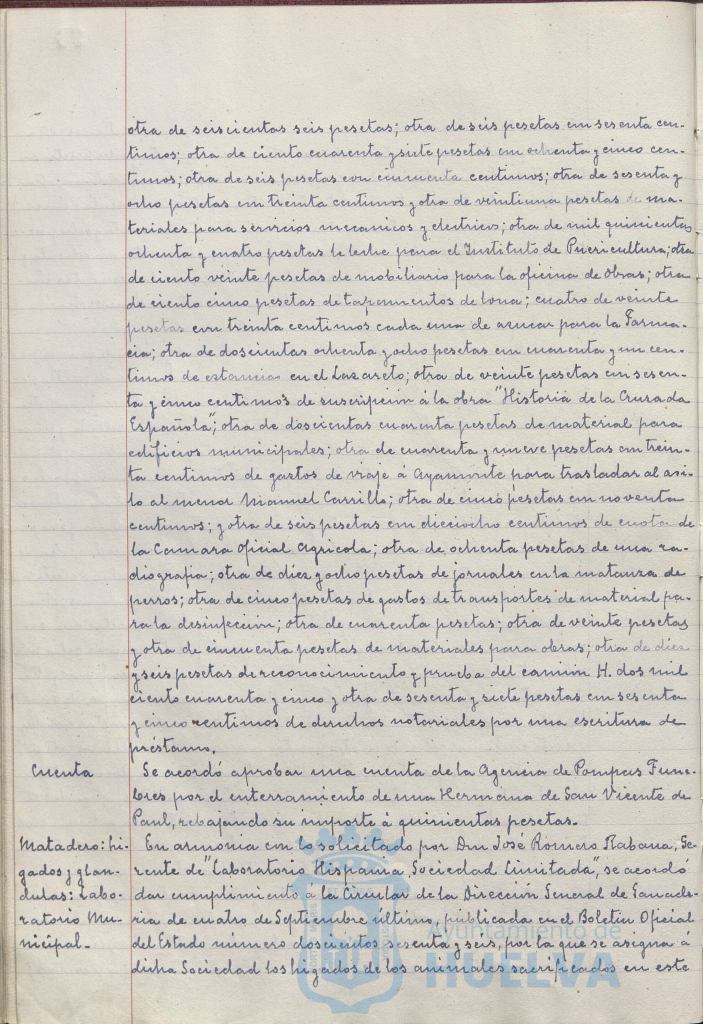 otra de seiscientas seis pesetas; otra de seis pesetas con sesenta cen-
timos; otra de ciento cuarenta y siete pesetas con ochenta y cinco cen-
timos; otra de seis pesetas con cincuenta centimos; otra de sesenta y
ocho pesetas con treinta centimos y otra de veintiuna pesetas de ma-
teriales para servicios mecanicos y electricos; otra de mil quinientas
ochenta y cuatro pesetas de leche para el Instituto de Puericultura; otra
de ciento veinte pesetas de mobiliario para la oficina de Obras; otra
de ciento cinco pesetas de tapamentos de lona; cuatro de veinte
pesetas con treinta centimos cada una de azucar para la Farma-
cia; otra de doscientas ochenta y ocho pesetas con cuarenta y un cen-
timos de estancias en el Lazareto; otra de veinte pesetas con sesen-
ta y cinco centimos de suscripcion á la obra "Historia de la Cruzada
Española"; otra de doscientas cuarenta pesetas de material para
edificios municipales; otra de cuarenta y nueve pesetas con trein-
ta centimos de gastos de viaje á Ayamonte para trasladar al asi-
lo al menor Manuel Carrillo; otra de cinco pesetas con noventa
centimos; y otra de seis pesetas con dieciocho centimos de cuota de
la Camara Oficial Agricola; otra de ochenta pesetas de una ra-
diografia; otra de diez y ocho pesetas de jornales en la matanza de
perros; otra de cinco pesetas de gastos de transportes de material pa-
ra la desinfeccion; otra de cuarenta pesetas; otra de veinte pesetas
y otra de cincuenta pesetas de materiales para obras; otra de diez
y seis pesetas de reconocimiento y prueba del camion H. dos mil
ciento cuarenta y cinco y otra de sesenta y siete pesetas con sesenta
y cinco centimos de derechos notariales por una escritura de
préstamo.
Cuenta
Se acordó aprobar una cuenta de la Agencia de Pompas Fune-
bres por el enterramiento de una Hermana de San Vicente de
Paul, rebajando su importe á quinientas pesetas.
Matadero: hi-
gados y glan-
dulas: Labo-
ratorio Mu-
nicipal.-
En armonia con lo solicitado por Don José Romero Rabana, Ge-
rente de "Laboratorio Hispania, Sociedad Limitada", se acordó
dar cumplimiento á la Circular de la Dirección General de Ganade-
ria de cuatro de Septiembre último, publicada en el Boletin Oficial
del Estado número doscientos sesenta y seis, por la que se asigna á
dicha Sociedad los higados de los animales sacrificados en este
Ayuntamiento de
HUELVA